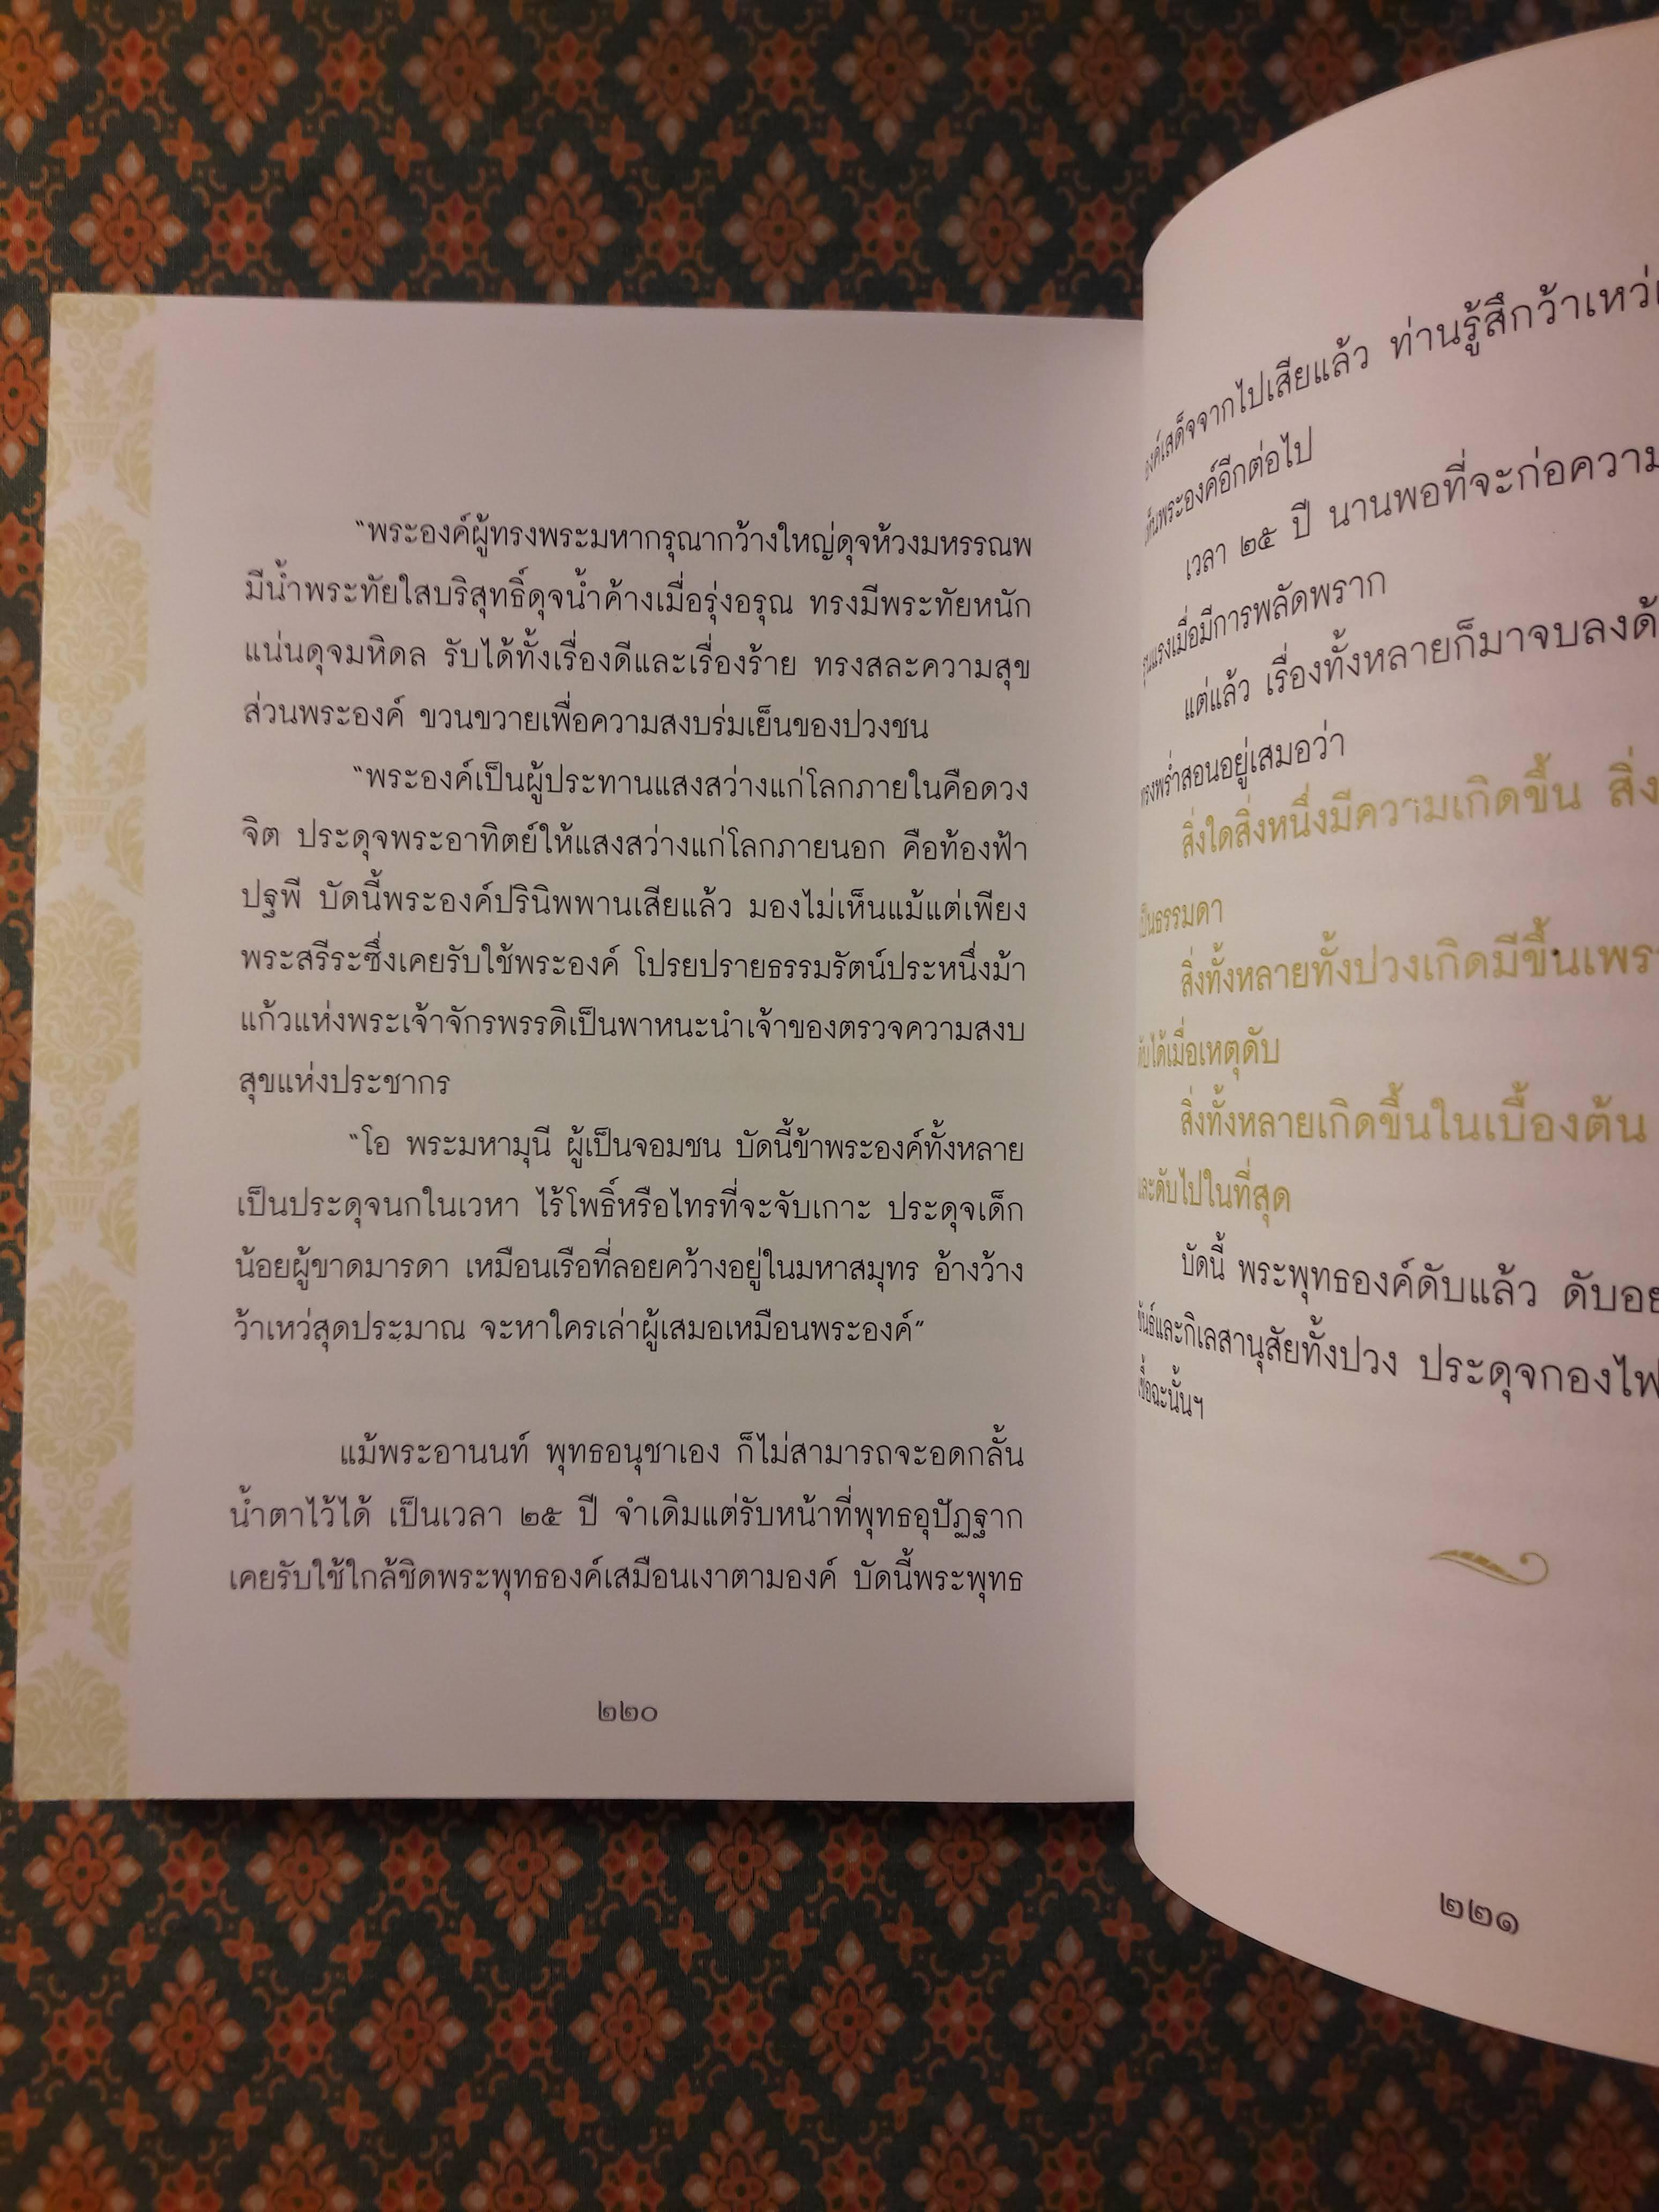 “พระองค์ผู้ทรงพระมหากรุณากว้างใหญ่ดุจห้วงมหรรณพ
มีน้ำพระทัยใสบริสุทธิ์ดุจน้ำค้างเมื่อรุ่งอรุณ ทรงมีพระทัยหนัก
แน่นดุจมหิดล รับได้ทั้งเรื่องดีและเรื่องร้าย ทรงสละความสุข
ส่วนพระองค์ ขวนขวายเพื่อความสงบร่มเย็นของปวงชน
“พระองค์เป็นผู้ประทานแสงสว่างแก่โลกภายในคือดวง
จิต ประดุจพระอาทิตย์ให้แสงสว่างแก่โลกภายนอก คือท้องฟ้า
ปฐพี บัดนี้พระองค์ปรินิพพานเสียแล้ว มองไม่เห็นแม้แต่เพียง
พระสรีระซึ่งเคยรับใช้พระองค์ โปรยปรายธรรมรัตน์ประหนึ่งม้า
แก้วแห่งพระเจ้าจักรพรรดิเป็นพาหนะนำเจ้าของตรวจความสงบ
สุขแห่งประชากร
“โอ พระมหามุนี ผู้เป็นจอมชน บัดนี้ข้าพระองค์ทั้งหลาย
เป็นประดุจนกในเวหา ไร้โพธิ์หรือไทรที่จะจับเกาะ ประดุจเด็ก
น้อยผู้ขาดมารดา เหมือนเรือที่ลอยคว้างอยู่ในมหาสมุทร อ้างว้าง
ว้าเหว่สุดประมาณ จะหาใครเล่าผู้เสมอเหมือนพระองค์”
แม้พระอานนท์ พุทธอนุชาเอง ก็ไม่สามารถจะอดกลั้น
น้ำตาไว้ได้ เป็นเวลา ๒๕ ปี จำเดิมแต่รับหน้าที่พุทธอุปัฏฐาก
เคยรับใช้ใกล้ชิดพระพุทธองค์เสมือนเงาตามองค์ บัดนี้พระพุทธ
๒๒๐
องค์เสด็จจากไปเสียแล้ว ท่านรู้สึกว้าเหว่
เห็นพระองค์อีกต่อไป
เวลา ๒๕ ปี นานพอที่จะก่อความ
รุนแรงเมื่อมีการพลัดพราก
แต่แล้ว เรื่องทั้งหลายก็มาจบลงด้
ทรงพร่ำสอนอยู่เสมอว่า
สิ่งใดสิ่งหนึ่งมีความเกิดขึ้น สิ่ง
เป็นธรรมดา
สิ่งทั้งหลายทั้งปวงเกิดมีขึ้นเพร
ดับได้เมื่อเหตุดับ
สิ่งทั้งหลายเกิดขึ้นในเบื้องต้น
และดับไปในที่สุด
บัดนี้ พระพุทธองค์ดับแล้ว ดับอย
ขันธ์และกิเลสานุสัยทั้งปวง ประดุจกองไฟ
เชื้อฉะนั้นฯ
๒๒๑